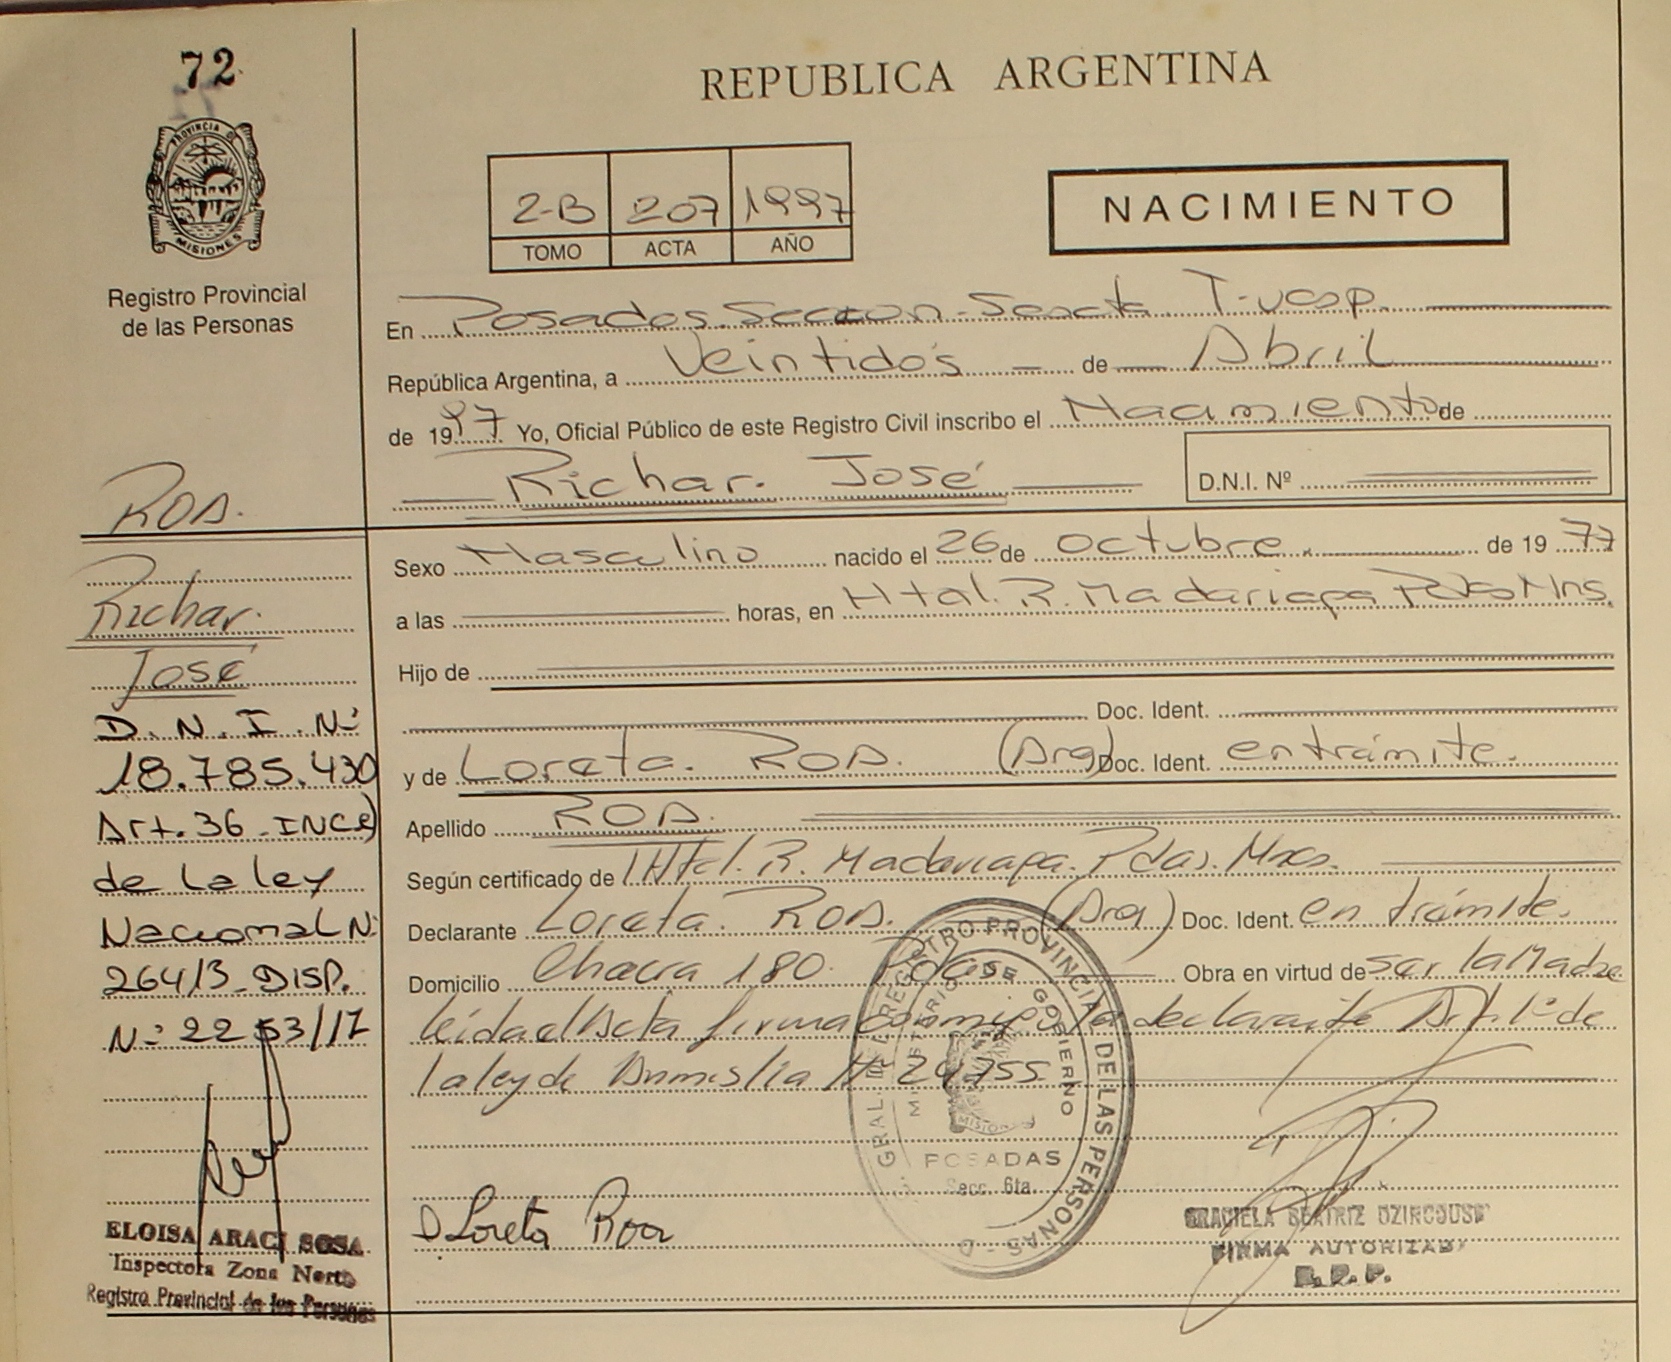 72
PROVINCIA DE
MISIONES
Registro Provincial
de las Personas
REPUBLICA ARGENTINA
2-B 207 1997
TOMO ACTA AÑO
NACIMIENTO
En Posadas. Seccion. Sexta. T-vesp.
República Argentina, a Veintidós de Abril
de 1997 Yo, Oficial Público de este Registro Civil inscribo el Nacimiento de
Richar. José
D.N.I. Nº
Sexo Masculino nacido el 26 de octubre. de 1977
a las horas, en Htal. R. Madariaga Pdas Mns.
Hijo de
Doc. Ident.
y de Loreta. ROA. (Arg) Doc. Ident. en trámite.
Apellido ROA.
Según certificado de Htal. R. Madariaga. Pdas. Mnes.
Declarante Loreta. ROA. (Arg.) Doc. Ident. en trámite.
Domicilio Chacra 180. Pdas Obra en virtud de ser la Madre
leida el Acta firma conmigo la declarante Art. 1º de
la ley de Amnistia Nº 24755.
ROA.
Richar.
José
D.N.I. Nº
18.785.430
Art. 36 INC e)
de la ley
Nacional Nº
26413 DISP.
Nº 2253/17
ELOISA ARACI SOSA
Inspectora Zona Norte
Registro Provincial de las Personas
D Loreta Roa
GRAL. DE REGISTRO PROVINCIAL DE LAS PERSONAS - D
MINISTERIO DE GOBIERNO
MISIONES
POSADAS
Secc. 6ta.
GRACIELA BEATRIZ DZIRCOUSD
FIRMA AUTORIZADA
R.P.P.